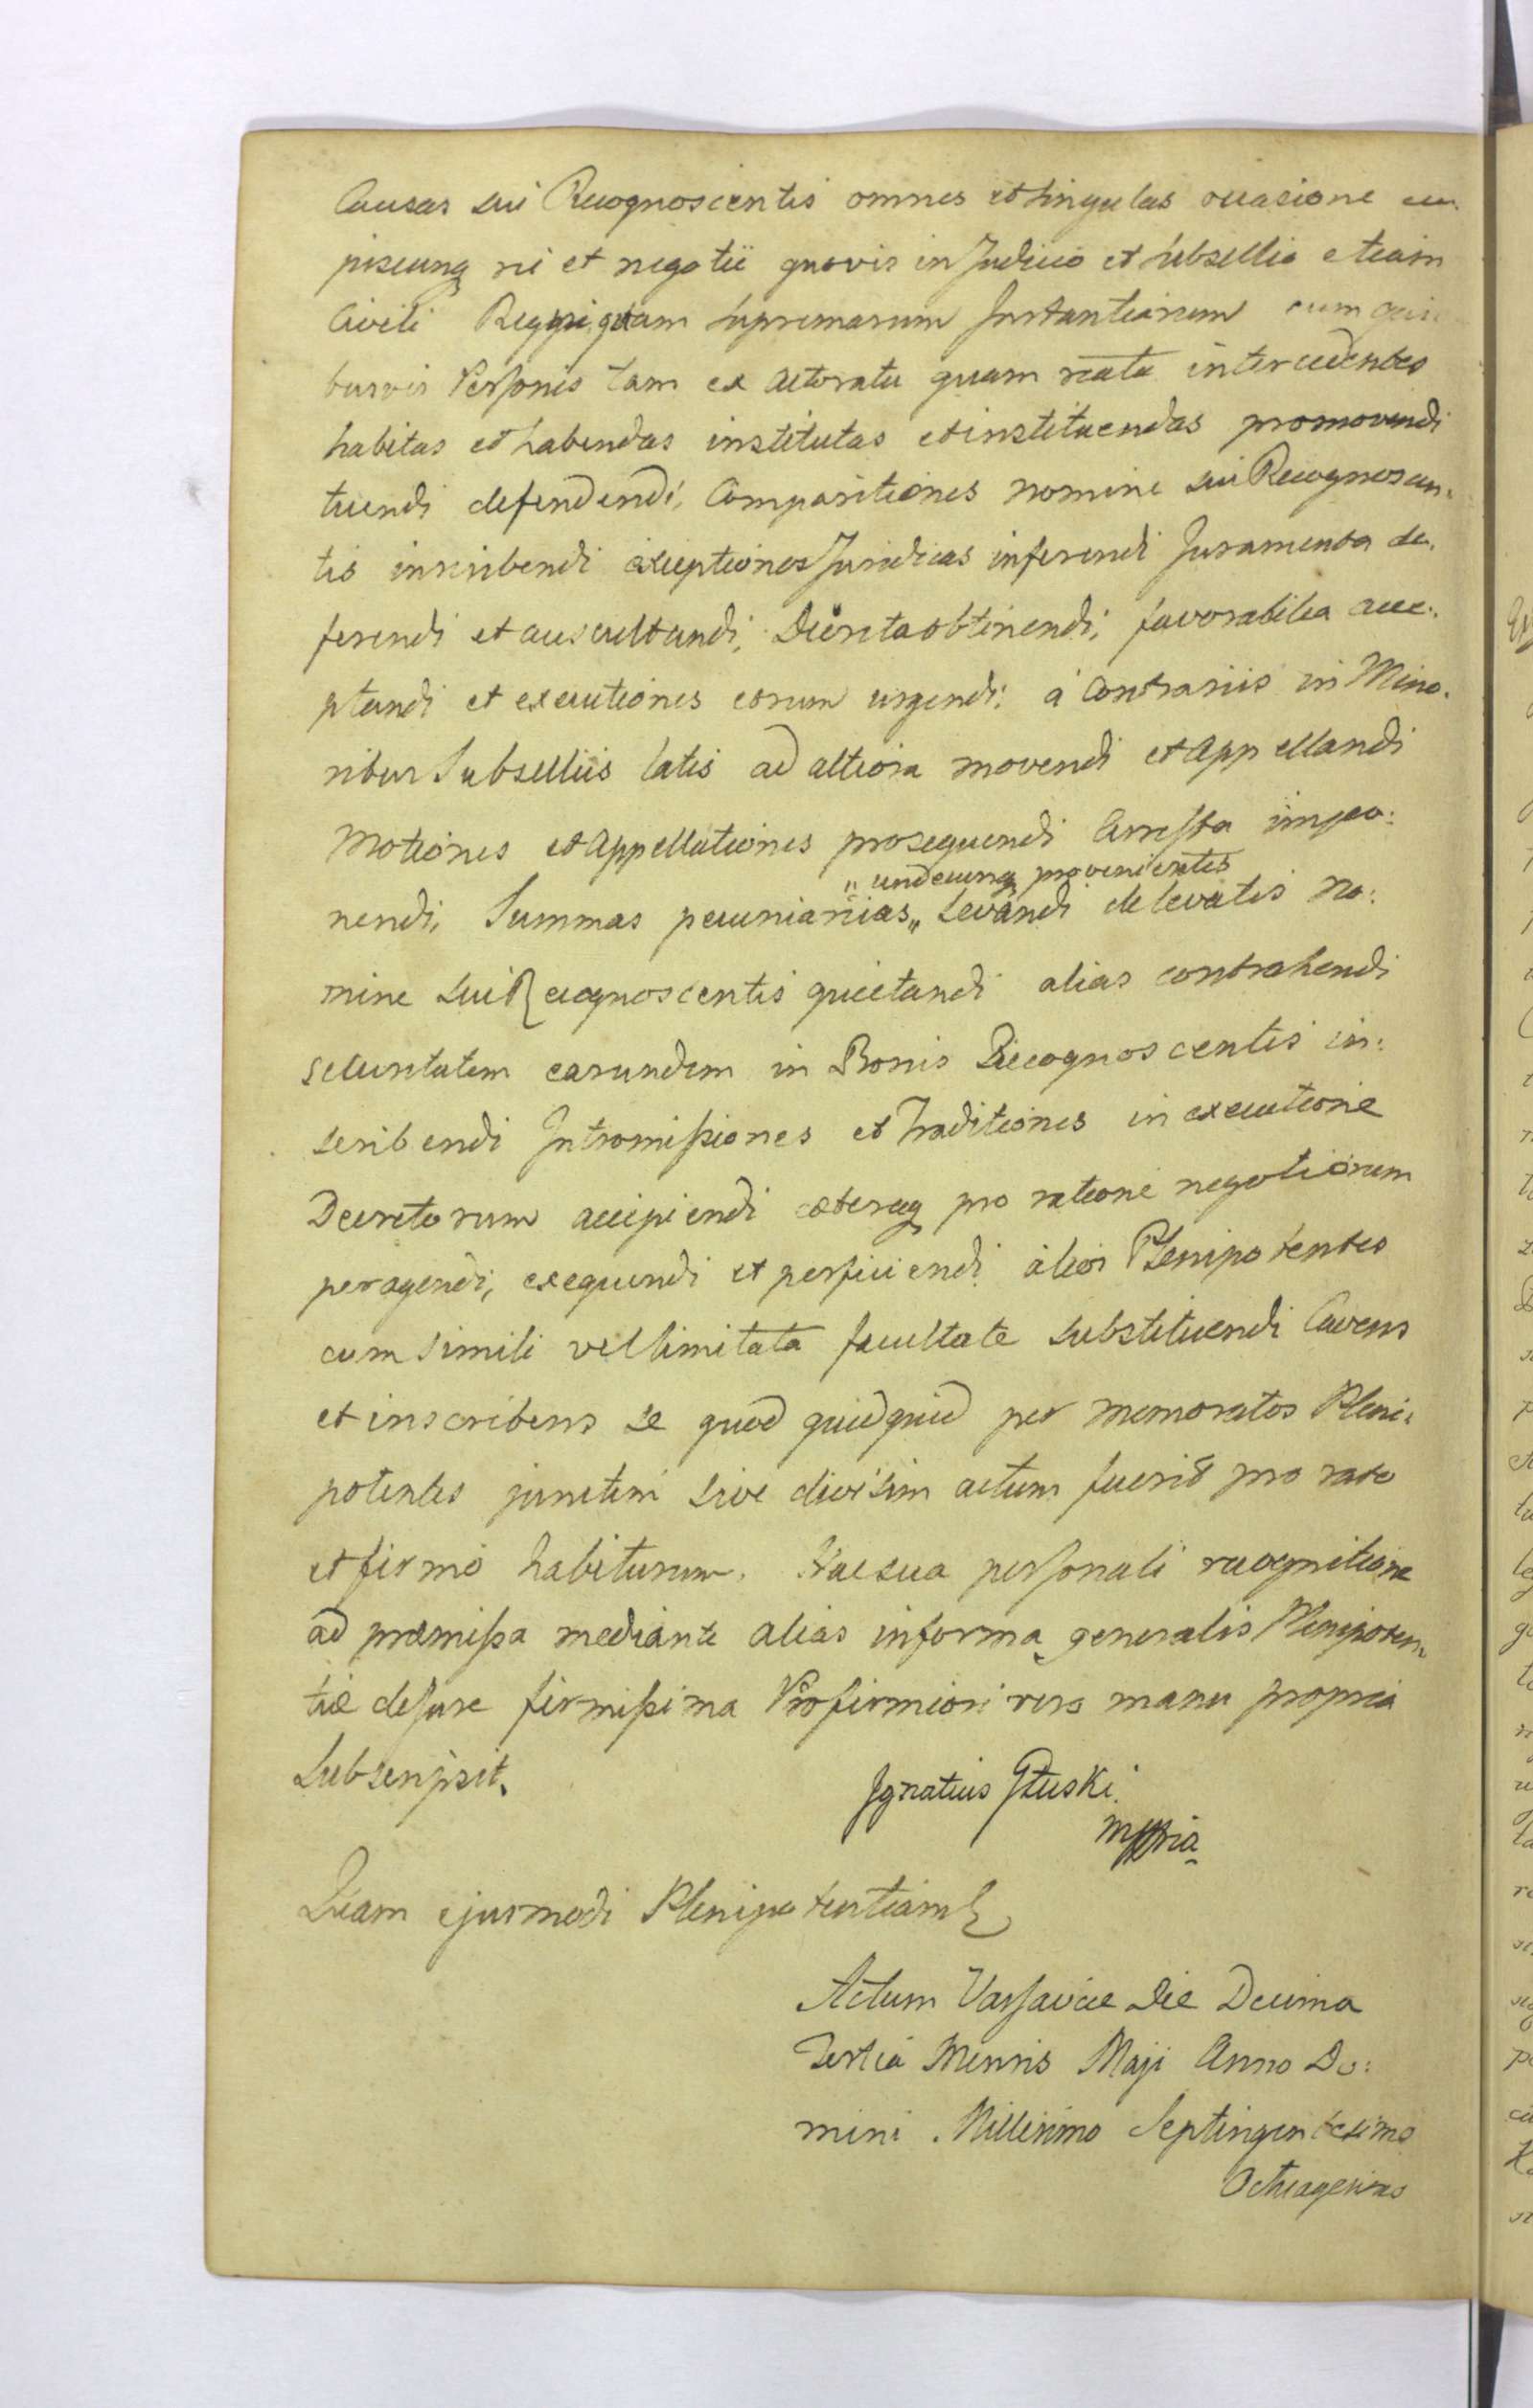 Causas sui Recognoscentis omnes et singulas occasione cu
juscunq rei et negotii quovis in Judicio et Subsellio etiam
Civili Regni quam Supremarum Instantiarum cum qui
busvis Personis tam ex Actoratu quam reatu intercedentes
habitas et habendas institutas et instituendas promovendi
tuendi defendendi, Compositiones nomine sui Recognoscen:
tis inscribendi exceptiones Juridicas inferendi Juramenta de,
ferendi et auscultandi, Decreta obtinendi, favorabilia acce:
ptandi et executiones eorum urgendi; a Contrariis in Mino:
ribus Subselliis latis ad altiora movendi et appellandi
Motiones et Appellationes prosequendi Arresta impo:
„ undecunq provenientes
nendi, Summas pecuniarias „ Levandi de levatis no:
mine sui Recognoscentis quietandi alias contrahendi
securitatem earundem in Bonis Recognoscentis in:
scribendi Intromissiones et Traditiones in executione
Decretorum accipiendi caeteraq pro ratione negotiorum
peragendi, exequendi et perficiendi alios Plenipotentes
cum simili vel limitata facultate substituendi Cavens
et inscribens se quod quidquid per memoratos Pleni:
potentes junctim sive divisim actum fuerit pro rato
et firmo habiturum. Hac sua personali recognitione
ad præmissa mediante alias in forma generalis Plenipoten
tiæ de Jure firmissima Pro firmiori vero manu propria
Subscripsit.
Ignatius Głuski
mppria
Quam ejusmodi Plenipotentiam
Actum Varsaviæ Die Decima
Tertia Mensis Maji Anno Do:
mini Millesimo Septingentesimo
Octuagesimo